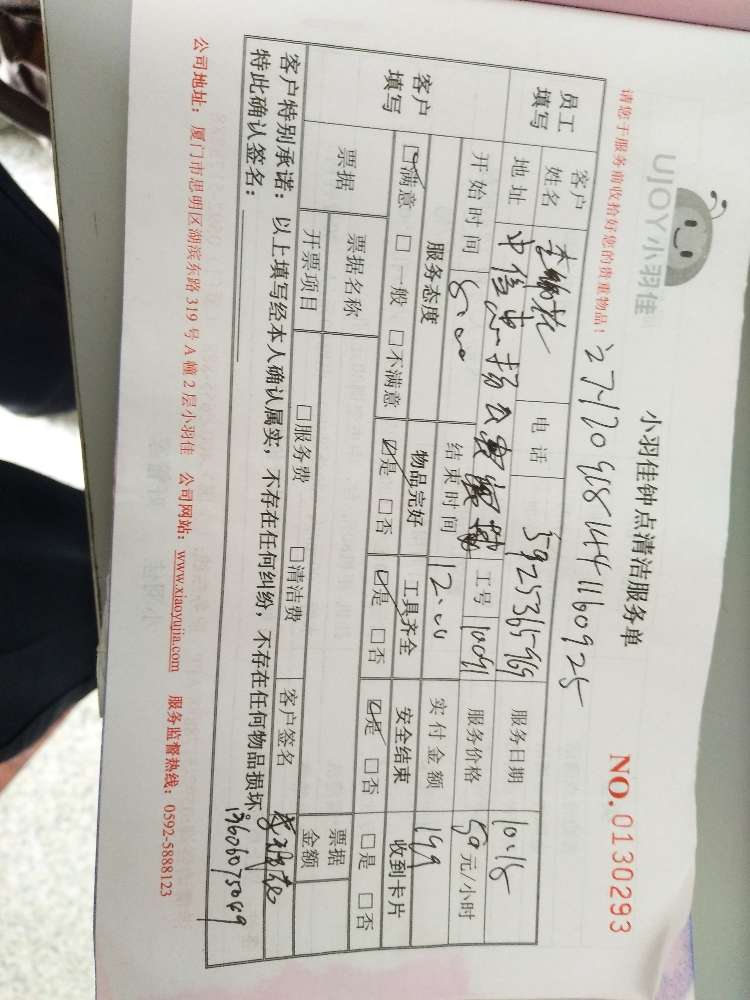 UJOY小羽佳
小羽佳钟点清洁服务单
NO.0130293
请您于服务前收拾好您的贵重物品!
员工填写 客户姓名 电话 5925365969 服务日期 10.18
地址 中信 工号 10091 服务价格 50元/小时
开始时间 8:00 结束时间 12:00 实付金额 199
客户填写 服务态度 物品完好 工具齐全 安全结束 收到卡片
☑满意 □一般 □不满意 ☑是 □否 ☑是 □否 ☑是 □否 □是 □否
票据 票据名称 票据金额
开票项目 □服务费 □清洁费 客户签名
客户特别承诺:以上填写经本人确认属实,不存在任何纠纷,不存在任何物品损坏。
特此确认签名: 13606075049
公司地址:厦门市思明区湖滨东路319号A幢2层小羽佳 公司网站:www.xiaoyujia.com 服务监督热线:0592-5888123